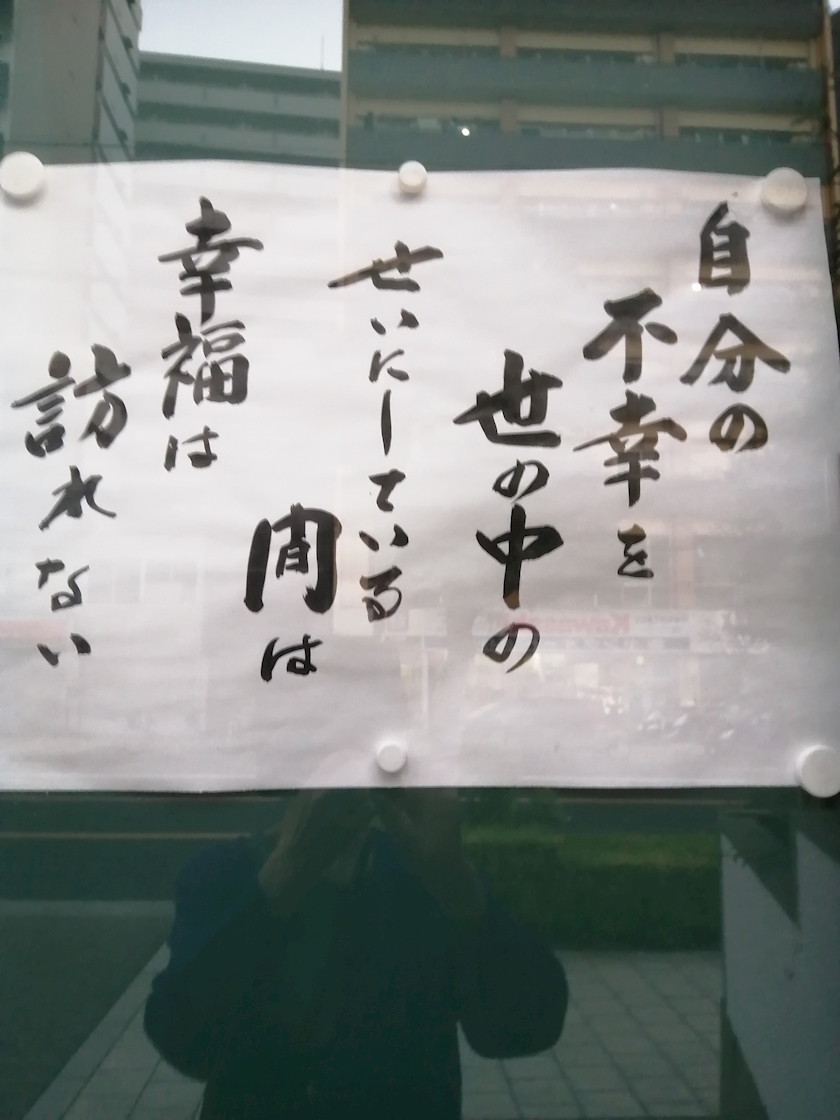 自分の
不幸を
世の中の
せいにしている
間は
幸福は
訪れない